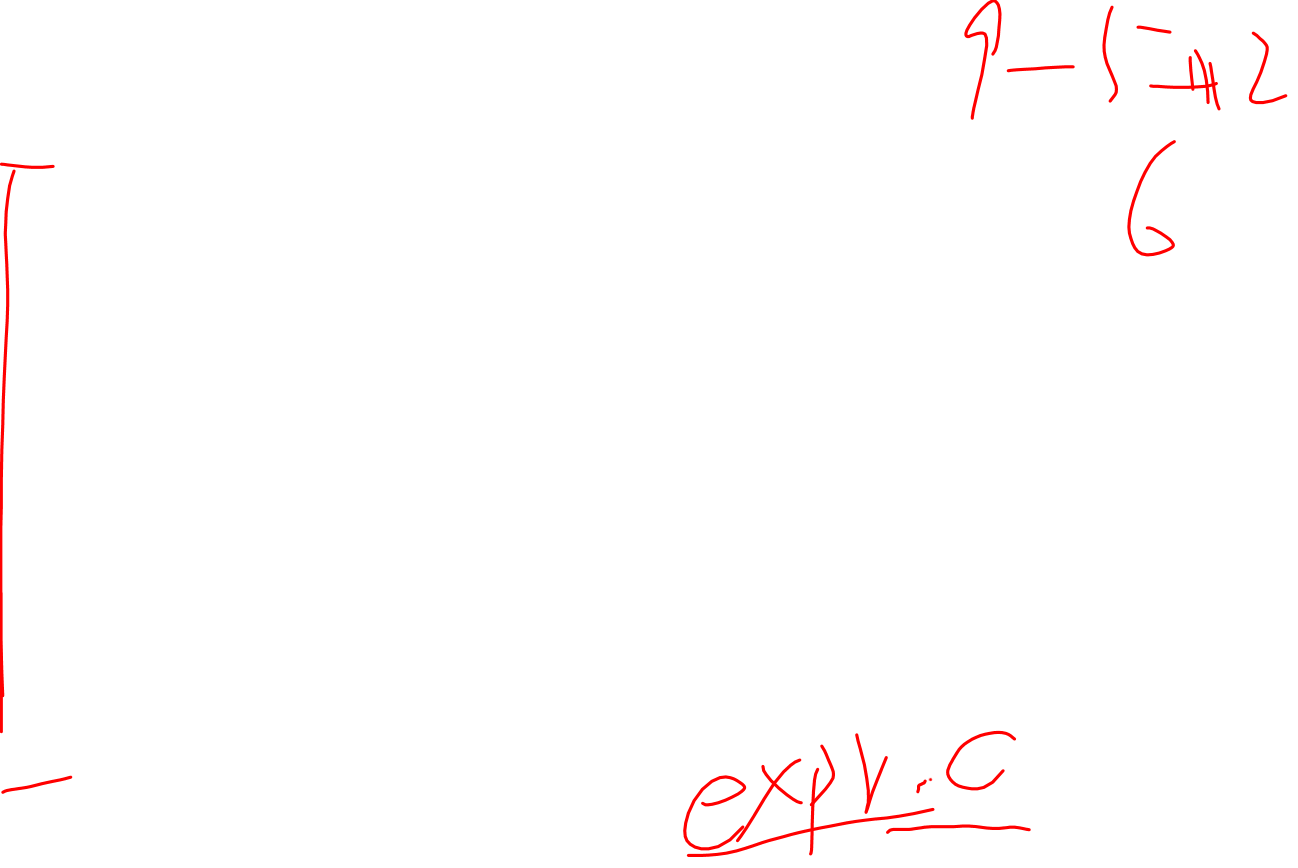 9-5+2
6
expr.c